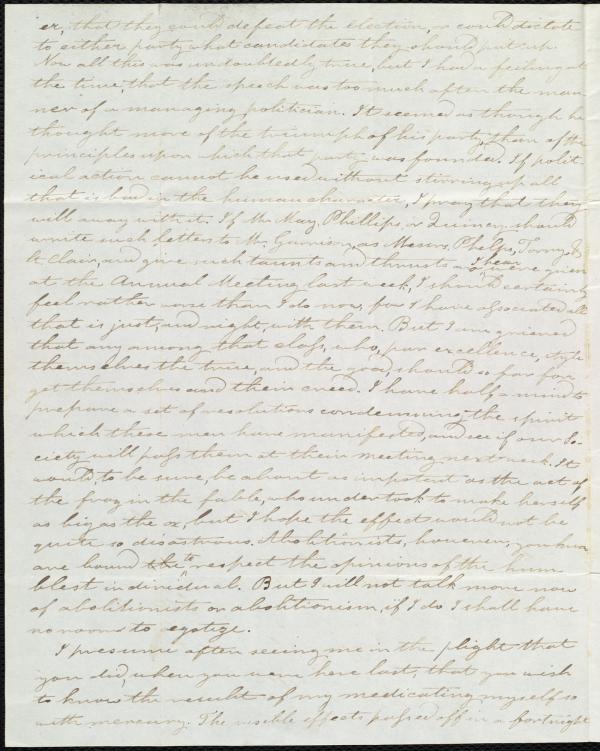 er, that they could defeat the election, or could dictate
to either party what candidates they should put up.
Now all this was undoubtedly true, but I had a feeling at
the time, that the speech was too much after the man-
ner of a managing politician. It seemed as though he
thought more of the triumph of his party, than of the
principles upon which that party was founded. If polit-
ical action cannot be used without stirring up all
that is bad in the human character, I pray that they
will away with it. If Mr. May, Phillips, or Quincy should
write such letters to Mr. Garrison, as Messrs. Phelps, Torrey, &
St Clair, and give such taunts and thrusts as were given
at the Annual Meeting last week, I should certainly
feel rather worse than I do now, for I have associated all
that is just, and right, with them. But I am grieved
that any among that class, who, par excellence, style
themselves the true, and the good, should so far for-
get themselves and their creed. I have half a mind to
prepare a set of resolutions condemning the spirit
which these men have manifested, and see if our So-
ciety will pass them at their meeting next week. It
would, to be sure, be about as impotent as the act of
the frog in the fable, who undertook to make herself
as big as the ox, but I hope the effect would not be
quite so disastrous. Abolitionists, however, you know
are bound to respect the opinions of the hum-
blest individual. But I will not talk more now
of abolitionists or abolitionism, if I do I shall have
no room to egotize.
I presume after seeing me in the plight that
you did, when you were here last, that you wish
to know the result of my medicating myself so
with mercury. The visible effects passed off in a fortnight